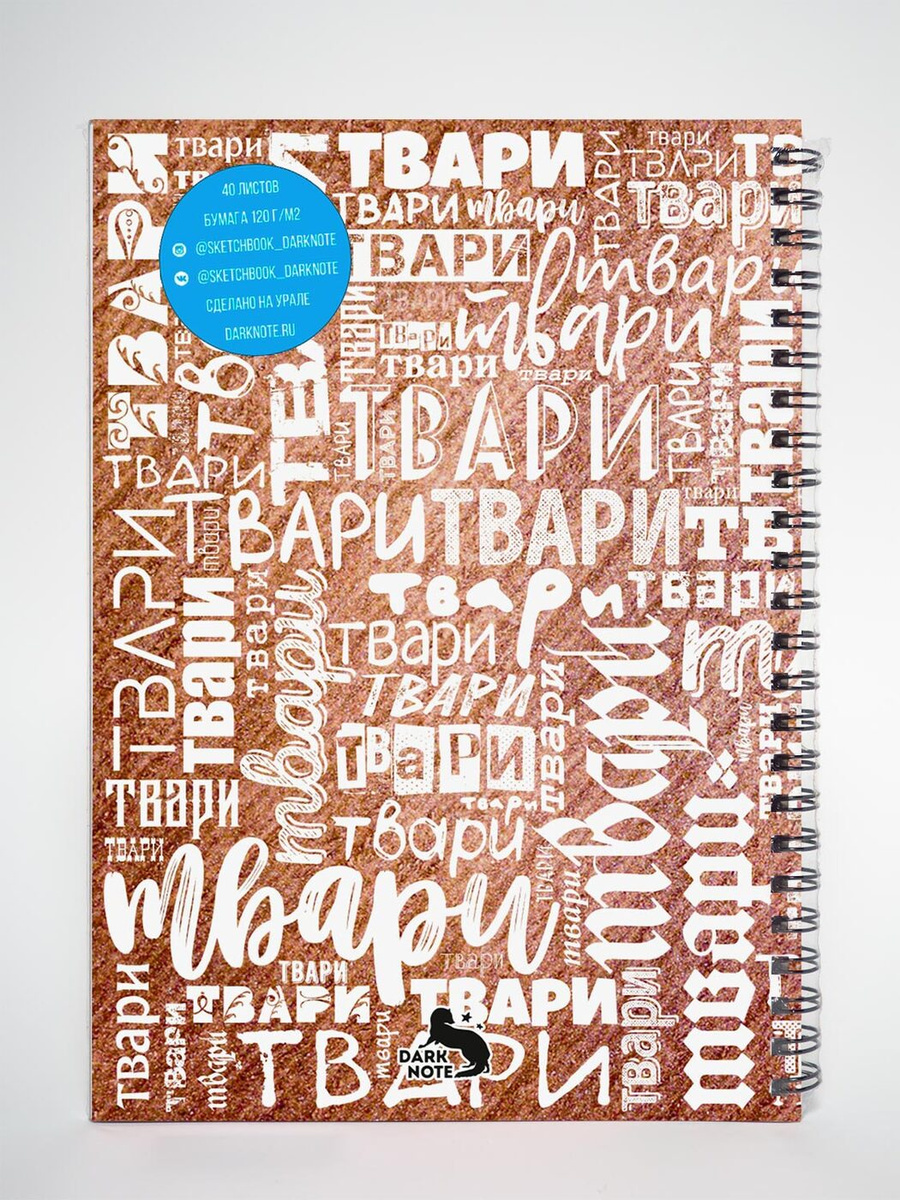 ТВАРИ
твари
ТВАРИ
твари
ТВАРИ
ТВАРИ
40 ЛИСТОВ
БУМАГА 120 Г/М2
@SKETCHBOOK_DARKNOTE
@SKETCHBOOK_DARKNOTE
СДЕЛАНО НА УРАЛЕ
DARKNOTE.RU
ТВАРИ
твари
твари
ТВАРИ
твари
ТВАРИ
твари
твари
твари
твари
твари
твари
ТВАРИ
ТВАРИ
твари
твари
ТВАРИ
ТВАРИ
ТВАРИ
ТВАРИ
твари
ТВАРИ
твари
твари
твари
твари
твари
твари
ТВАРИ
твари
твари
твари
твари
твари
твари
ТВАРИ
твари
твари
твари
твари
ТВАРИ
ТВАРИ
ТВАРИ
твари
твари
твари
твари
твари
ТВАРИ
DARK
NOTE